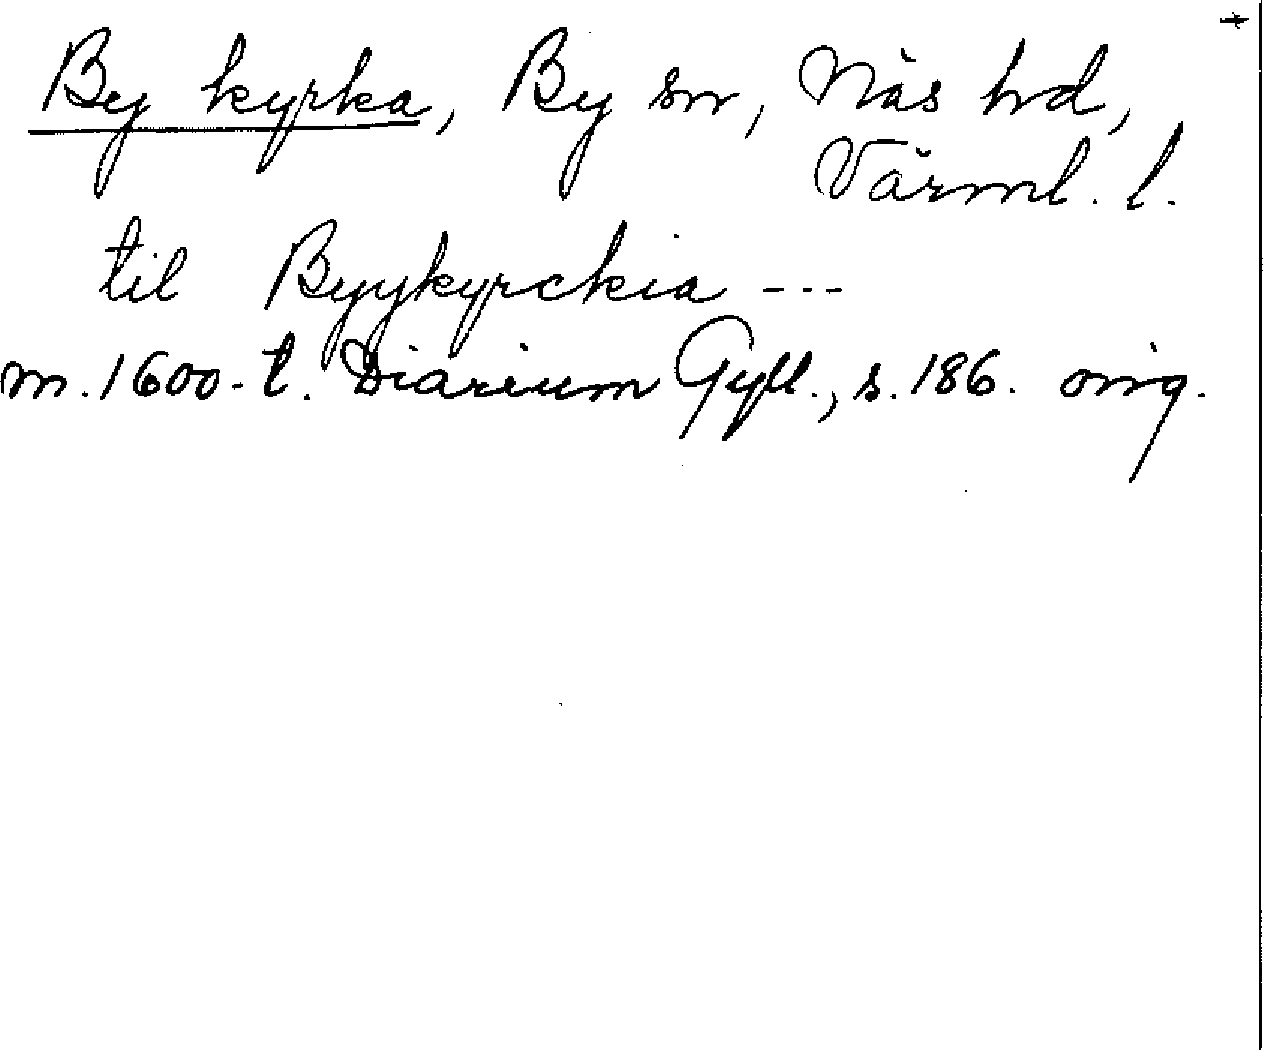 By kyrka, By sn, Näs hd,
Värml. l.
til Byykyrckia ---
m. 1600-t. Diarium Gyll., s. 186. orig.